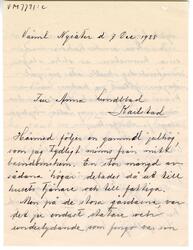 VM7771:2
Nysäter d 7 Dec 1938
Fru Anna Lundblad
Karlstad
Härmed följer en gammal julhög
som jag tydligt minns från mitt
barndomshem. En stor mängd av
sådana högar delades då ut till
husets tjänare och till fattiga.
Men på de stora gårdarna var
det ju endast statare och
underlydande, som fingo var sin